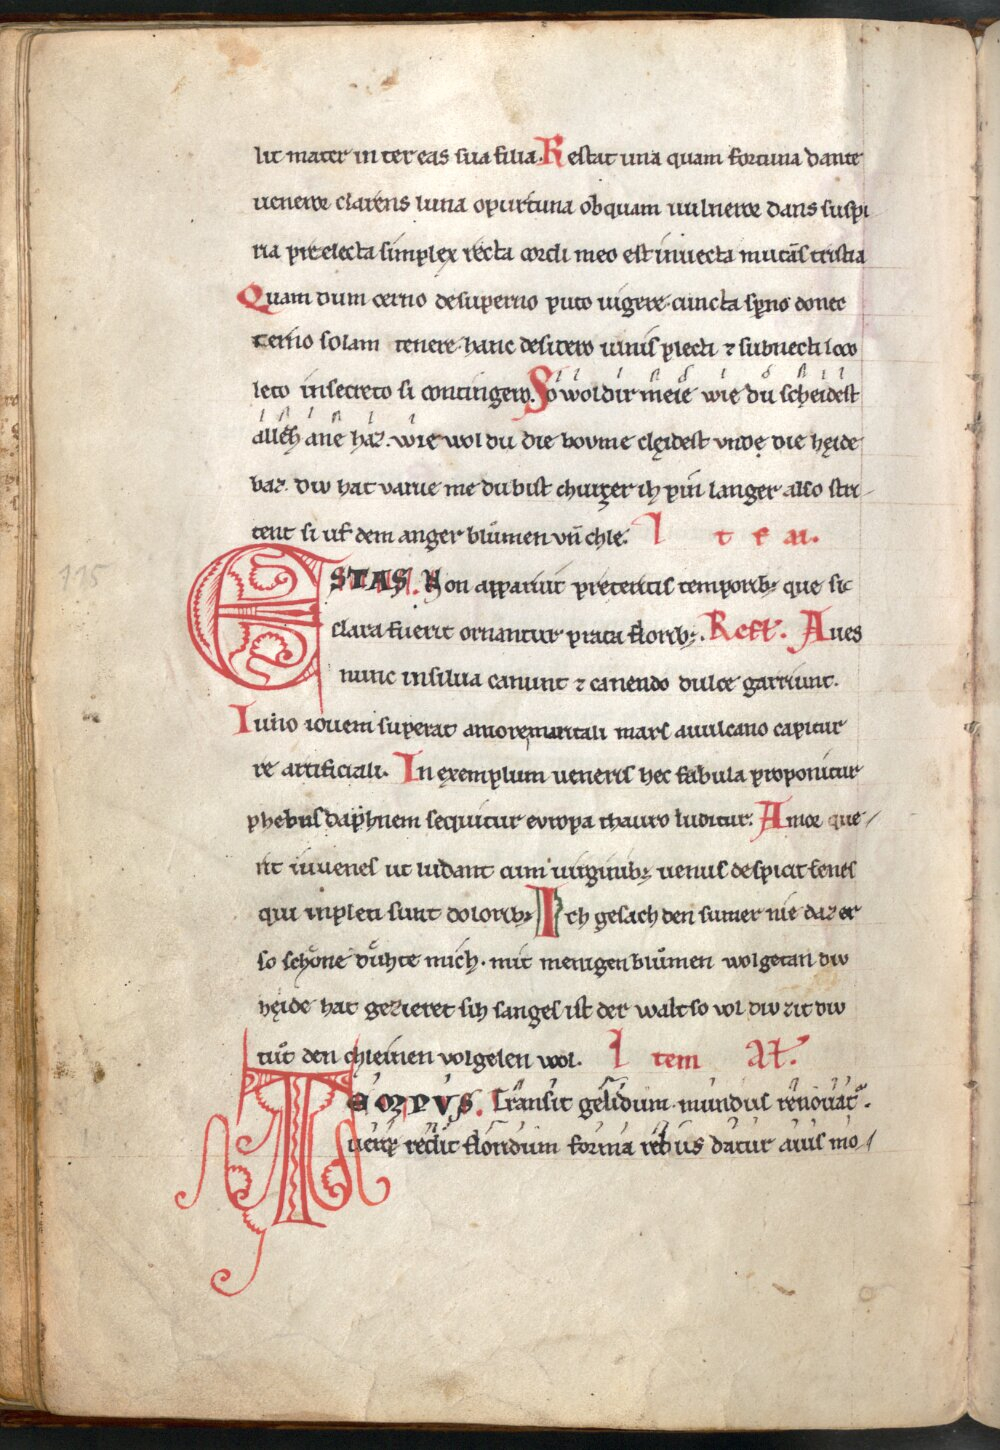 lit mater inter eas sua filia. Restat una quam fortuna dante
ueneror clarens luna oportuna ob quam uulneror dans suspi
ria preelecta simplex recta cordi meo est inuecta mutās tristia
Quam dum cerno de superno puto uigere cuncta sp̄no donec
cerno solam tenere hanc desidero uinis plecti ⁊ subnecti loco
leto in secreto si contingero. So wol dir meie wie du scheidest
allēh ane haz. wie wol du die boume cleidest vnde die heide
baz. div hat varue me du bist churzer ih pin langer also stri
tent si uf dem anger blůmen vn̄ chle. Item.
ESTAS. Non apparuit preteritis temporibꝫ que sic
clara fuerit ornantur prata floribꝫ. Refl. Aues
nunc in silua canunt ⁊ canendo dulce garriunt.
Iuno iouem superat amore maritali mars a uulcano capitur
re artificiali. In exemplum ueneris hec fabula proponitur
phebus daphnem sequitur europa thauro luditur. Amor que
rit iuuenes ut ludant cum uirginibꝫ uenus despicit senes
qui inpleti sunt doloribꝫ Ich gesach den sumer nie daz er
so schone duhte mich. mit menigen blůmen wolgetan div
heide hat gezieret sih sanges ist der walt so vol div zit div
tůt den chleinen volgelen wol. Item Al̄.
TEMPVS. Transit gelidum mundus renouat᷑.
uerqꝫ redit floridum forma rebus datur auis mo
115